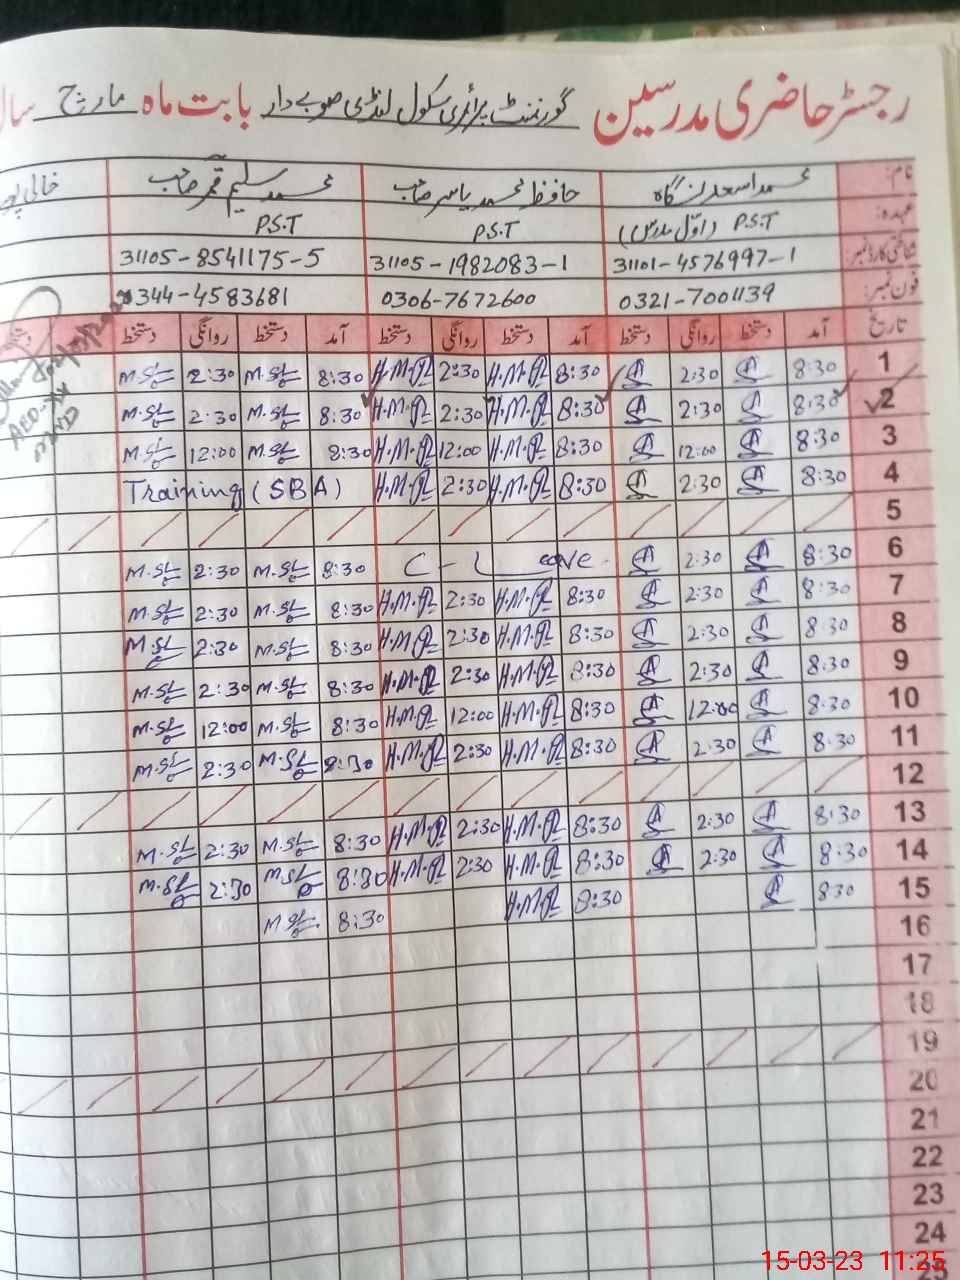 رجسٹر حاضری مدرسین گورنمنٹ پرائمری سکول لنڈی صوبے دار بابت ماہ مارچ سال
نام: محمد اسعد محمد یاسر صاحب حافظ محمد سلیم قمر صاحب خالی
عہدہ: P.S.T (اوّل مدرس) P.S.T P.S.T
شناختی کارڈ نمبر: 31101-4576997-1 31105-1982083-1 31105-8541175-5
فون نمبر: 0321-7001139 0306-7672600 0344-4583681
تاریخ آمد دستخط روانگی دستخط آمد دستخط روانگی دستخط آمد دستخط روانگی دستخط دستخط
1 8:30 2:30 8:30 H.M.R 2:30 H.M.R 8:30 2:30
2 8:30 2:30 8:30 H.M.R 2:30 H.M.R 8:30 2:30
3 8:30 12:00 8:30 H.M.R 12:00 H.M.R 8:30 12:00
4 8:30 2:30 8:30 H.M.R 2:30 H.M.R Training (SBA)
5
6 8:30 2:30 C-Leave 8:30 2:30
7 8:30 2:30 8:30 H.M.R 2:30 H.M.R 8:30 2:30
8 8:30 2:30 8:30 H.M.R 2:30 H.M.R 8:30 2:30
9 8:30 2:30 8:30 H.M.R 2:30 H.M.R 8:30 2:30
10 8:30 12:00 8:30 H.M.R 12:00 H.M.R 8:30 12:00
11 8:30 2:30 8:30 H.M.R 2:30 H.M.R 8:30 2:30
12
13 8:30 2:30 8:30 H.M.R 2:30 H.M.R 8:30 2:30
14 8:30 2:30 8:30 H.M.R 2:30 H.M.R 8:30 2:30
15 830 8:30 H.M.R 8:30
16
17
18
19
20
21
22
23
24
25
15-03-23 11:25